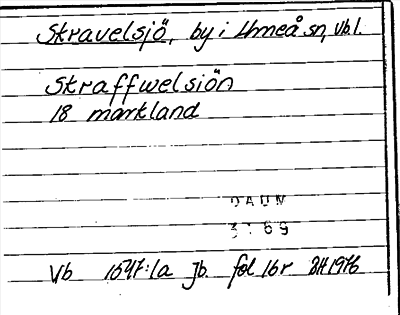 Skravelsjö, by i Umeå sn, Vb. l.
Skraffwelsiön
18 markland
DAUM
3169
Vb 1547:1a Jb. fol 16r BH 1976